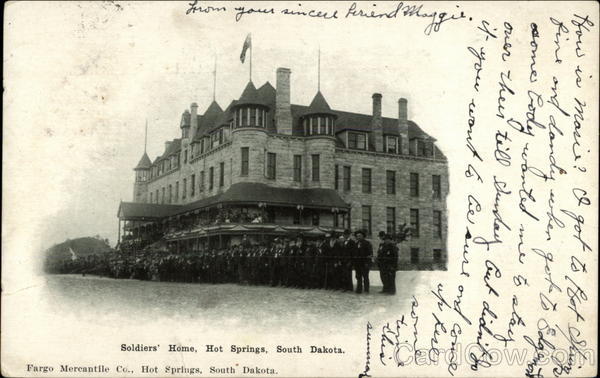 From your sincere friend Maggie.
How is Marie? I got to Hot Springs
fine and dandy when got to
some body wanted me to stay
over there till Sunday but didn't
if you want to be sure and come
up here
some
time
this
summer
Soldiers' Home, Hot Springs, South Dakota.
Fargo Mercantile Co., Hot Springs, South Dakota.
CardCow.com